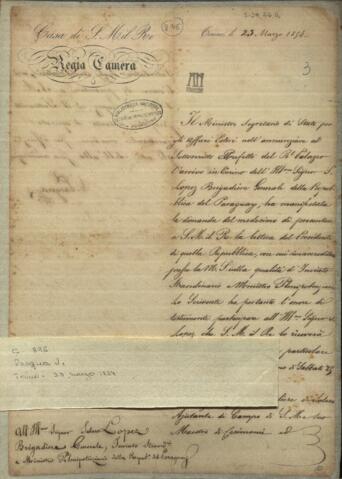 Casa di S. M. il Re
Regia Camera
896
Torino, il 23. Marzo 1854.
3
Il Ministro Segretario di Stato per
gli affari Esteri nell'annunziare al
Sottoscritto Prefetto del Rl. Palazzo
l'arrivo in Torino dell'Ill.mo Signor S.
Lopez Brigadiere Generale della Repub
blica del Paraguay, ha manifestata
la domanda del medesimo di presentare
a S. M. il Re la lettera del Presidente
di quella Repubblica, con cui
presso la M. S. nella qualità di Inviato
Straordinario e Ministro Plenipotenziario
Lo Scrivente ha pertanto l'onore di
partecipare all'Ill.mo Signor
Lopez che S. M. il Re lo riceverà
particolare
di Sabbato 25
Ajutante di Campo di S. M.
Maestro di Cerimonie
C 896
Pasqua J.
Torino 23 marzo 1854
All'Ill.mo Signor Solano Lopez
Brigadiere Generale, Inviato Straord.o
e Ministro Plenipotenziario della Repub.a del Paraguay